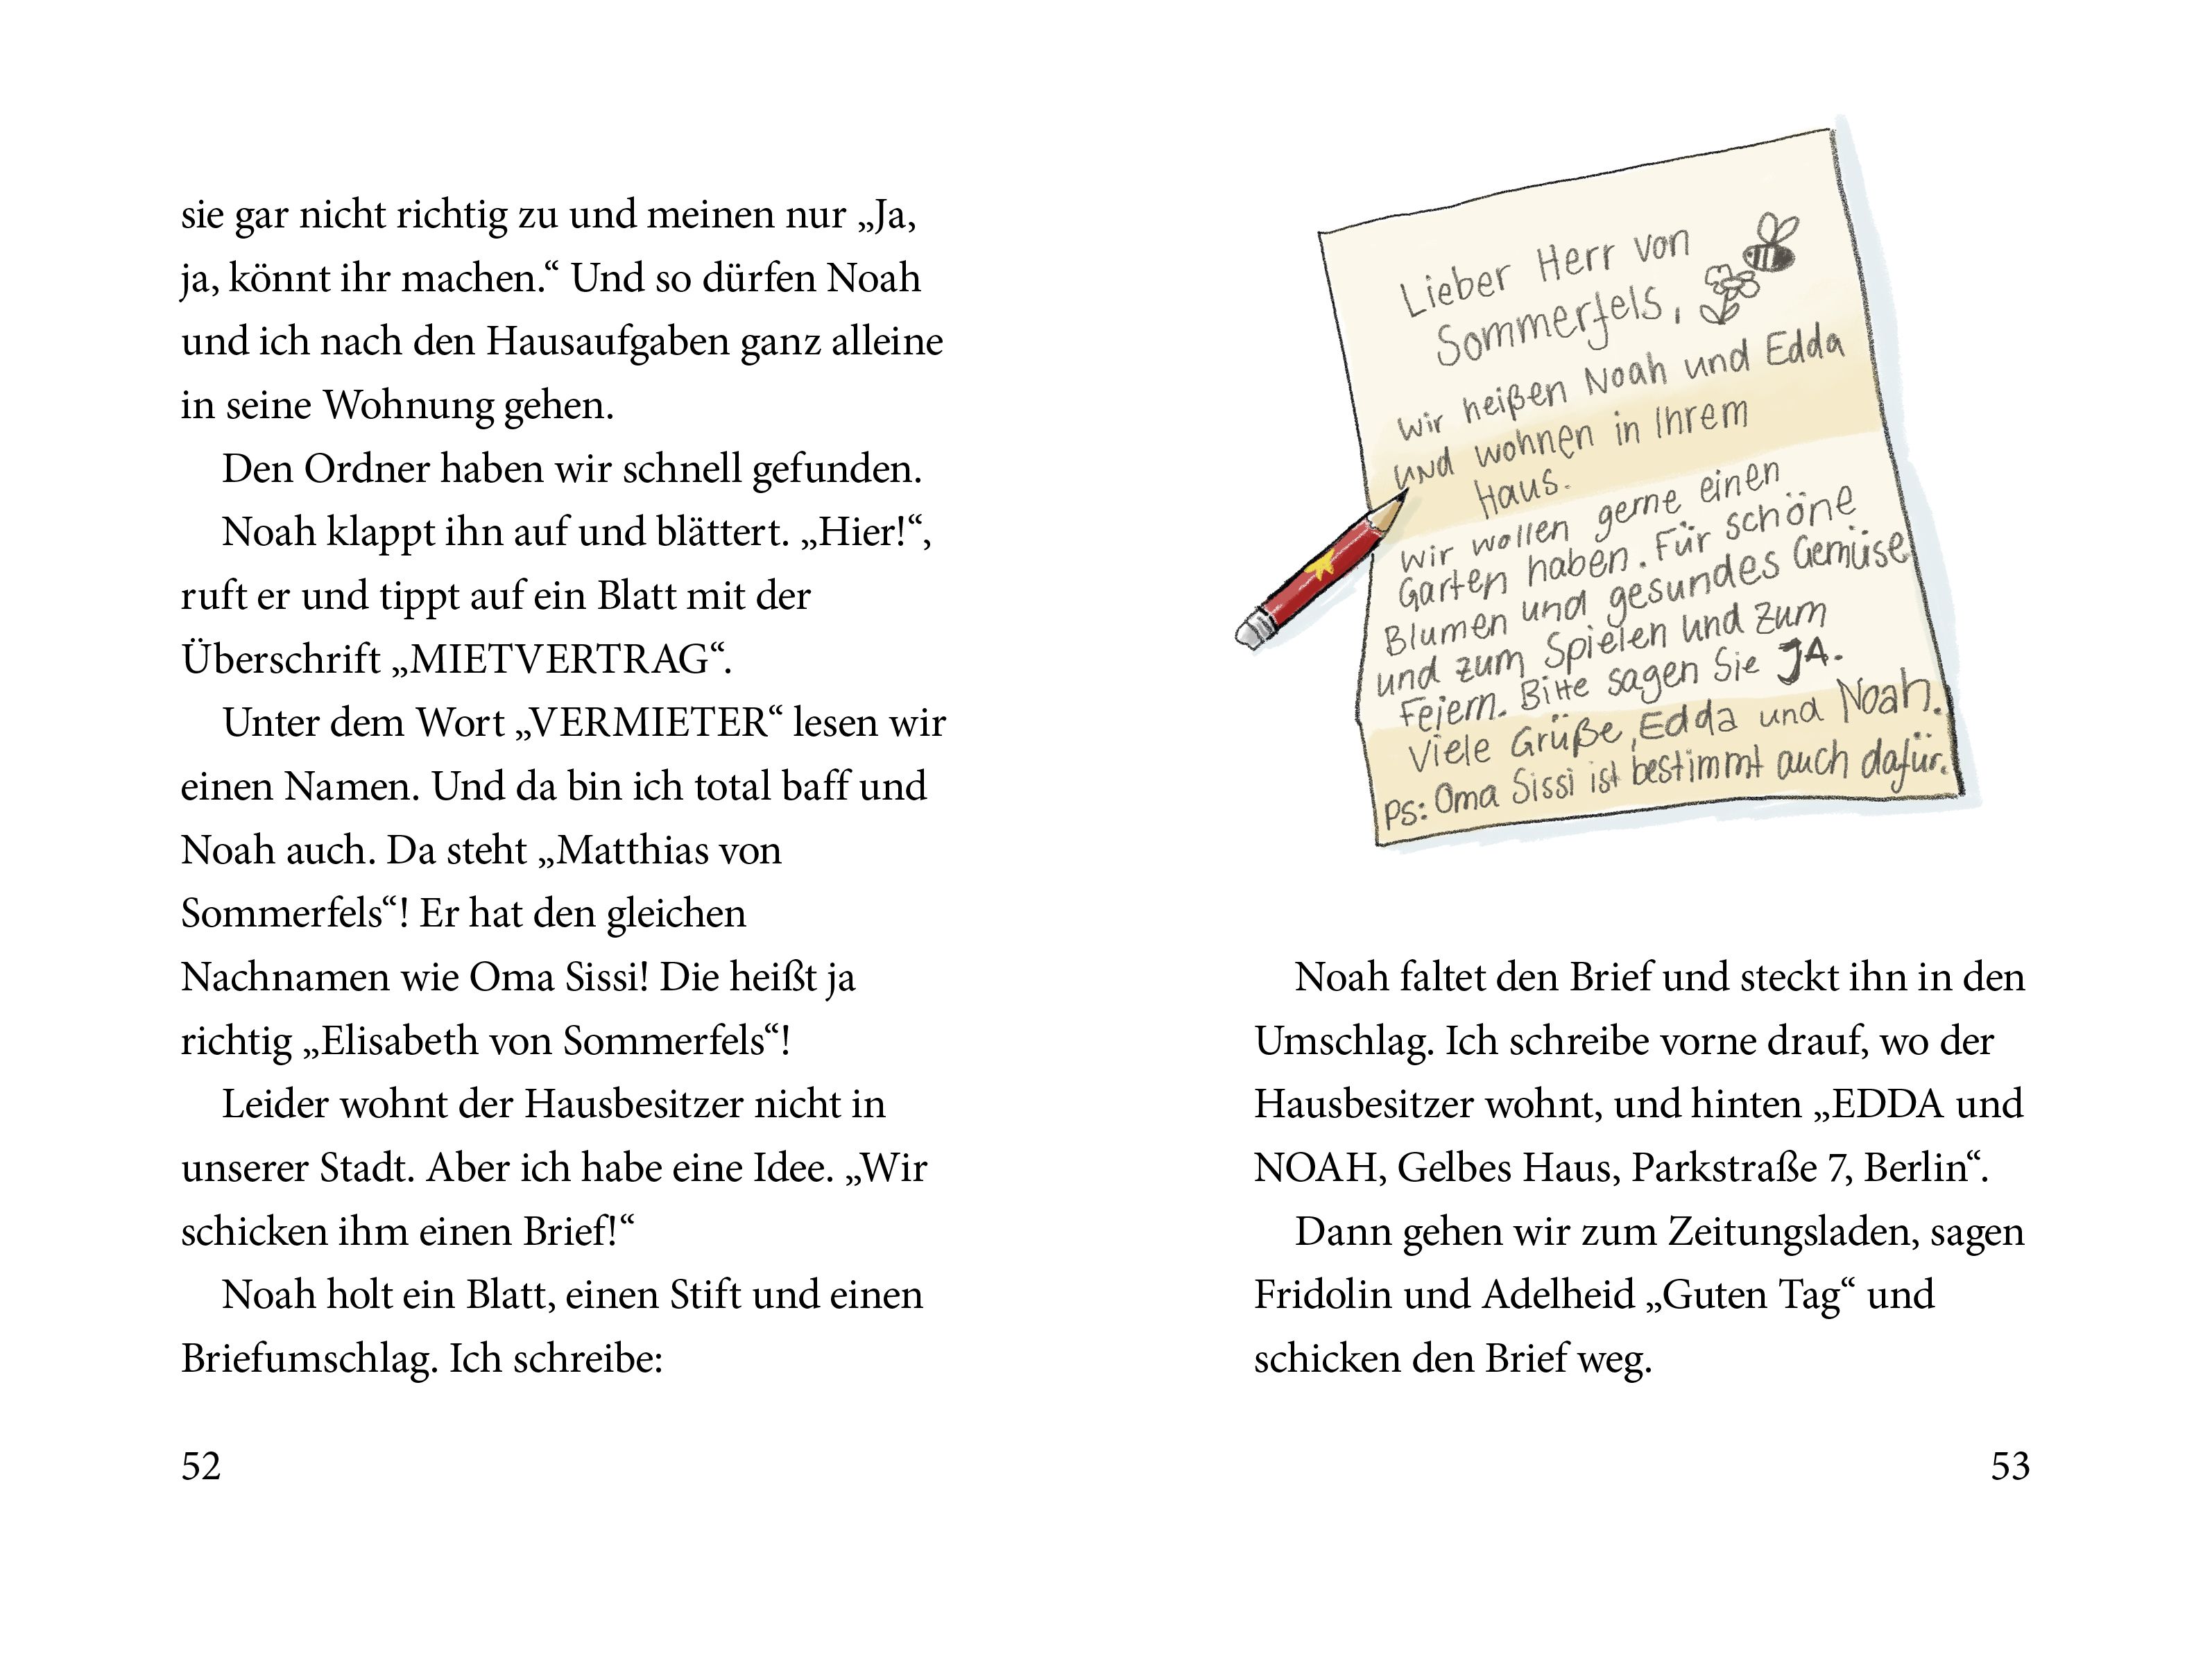 sie gar nicht richtig zu und meinen nur „Ja,
ja, könnt ihr machen.“ Und so dürfen Noah
und ich nach den Hausaufgaben ganz alleine
in seine Wohnung gehen.
Den Ordner haben wir schnell gefunden.
Noah klappt ihn auf und blättert. „Hier!“,
ruft er und tippt auf ein Blatt mit der
Überschrift „MIETVERTRAG“.
Unter dem Wort „VERMIETER“ lesen wir
einen Namen. Und da bin ich total baff und
Noah auch. Da steht „Matthias von
Sommerfels“! Er hat den gleichen
Nachnamen wie Oma Sissi! Die heißt ja
richtig „Elisabeth von Sommerfels“!
Leider wohnt der Hausbesitzer nicht in
unserer Stadt. Aber ich habe eine Idee. „Wir
schicken ihm einen Brief!“
Noah holt ein Blatt, einen Stift und einen
Briefumschlag. Ich schreibe:
52
Lieber Herr von
Sommerfels,
Wir heißen Noah und Edda
und wohnen in Ihrem
Haus.
Wir wollen gerne einen
Garten haben. Für schöne
Blumen und gesundes Gemüse
und zum Spielen und zum
Feiern. Bitte sagen Sie JA.
Viele Grüße, Edda und Noah.
PS: Oma Sissi ist bestimmt auch dafür.
Noah faltet den Brief und steckt ihn in den
Umschlag. Ich schreibe vorne drauf, wo der
Hausbesitzer wohnt, und hinten „EDDA und
NOAH, Gelbes Haus, Parkstraße 7, Berlin“.
Dann gehen wir zum Zeitungsladen, sagen
Fridolin und Adelheid „Guten Tag“ und
schicken den Brief weg.
53